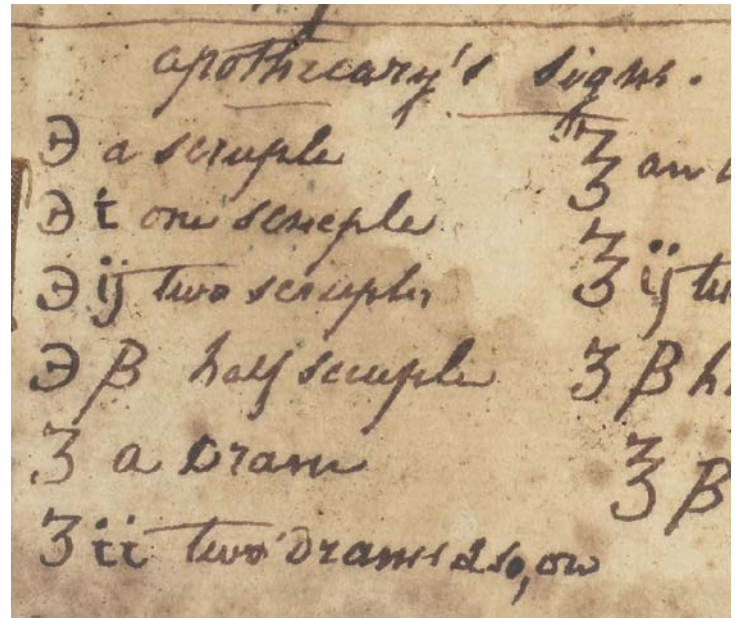 apothecary's signs.
℈ a scruple
℈ i one scruple
℈ ij two scruples
℈ ß half scruple
ʒ a Dram
ʒ ii two Drams & so, on
℥ an
℥ ij
ʒ ß
℥ ß